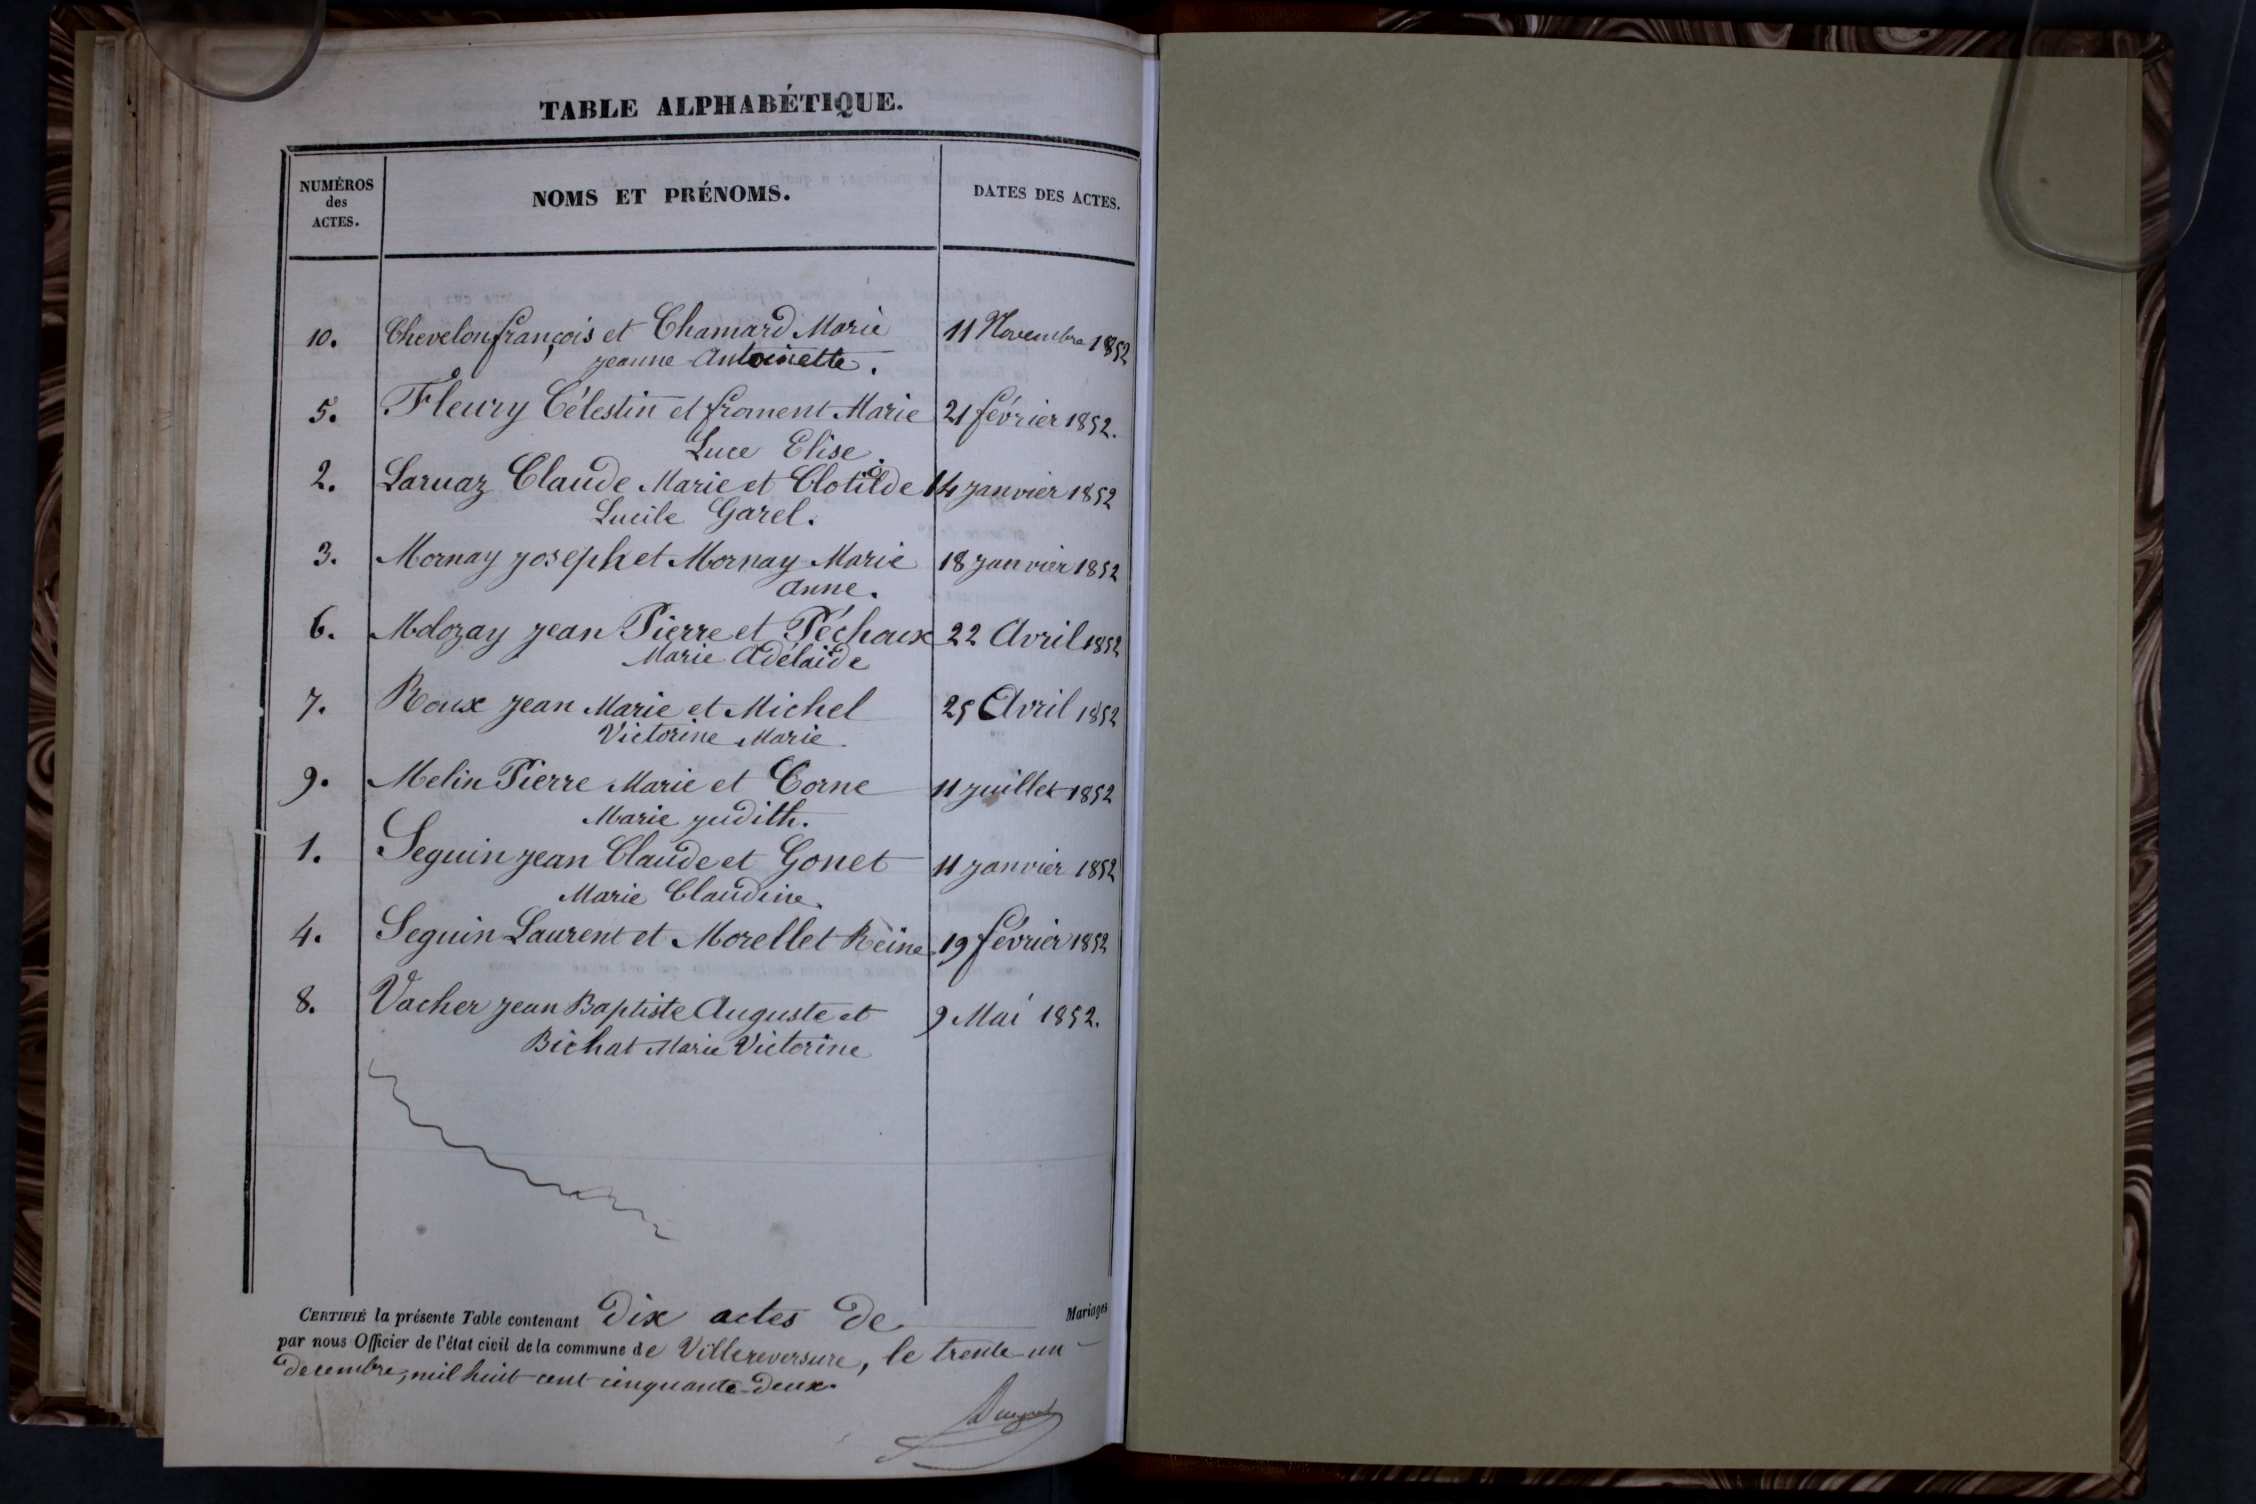 TABLE ALPHABÉTIQUE.
NUMÉROS
des
ACTES.
NOMS ET PRÉNOMS.
DATES DES ACTES.
10. Chevelon françois et Chamard Marie 11 Novembre 1852
jeanne Antoinette.
5. Fleury Célestin et froment Marie 21 février 1852.
Luce Elise.
2. Laruaz Claude Marie et Clotilde 14 janvier 1852
Lucile Garel.
3. Mornay joseph et Mornay Marie 18 janvier 1852
anne.
6. Molozay jean Pierre et Péchoux 22 Avril 1852
Marie Adélaïde
7. Roux jean Marie et Michel 25 Avril 1852
Victorine Marie
9. Melin Pierre Marie et Corne 11 juillet 1852
Marie judith.
1. Seguin jean Claude et Gonet 11 janvier 1852
Marie Claudine.
4. Seguin Laurent et Morellet Reine 19 février 1852
8. Vacher jean Baptiste Auguste et 9 Mai 1852.
Bichat Marie Victorine
CERTIFIÉ la présente Table contenant Dix actes de Mariages
par nous Officier de l'état civil de la commune de Villereversure, le trente-un
decembre, mil huit cent cinquante-Deux.